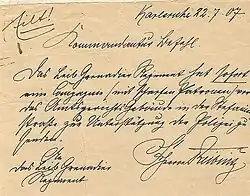 Eilt!
Karlsruhe 22. 7. 07.
Kommandantur Befehl.
Das Leib Grenadier Regiment hat sofort
eine Compagnie (mit scharfen Patronen) in
das Amtsgerichtsgebäude in der
Straße zur Unterstützung der Polizei zu
senden.
An
das Leib Grenadier
Regiment